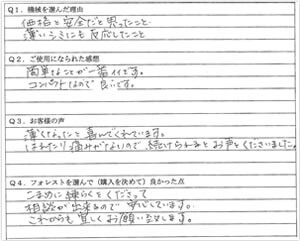 Q1．機械を選んだ理由
価格と安全だと思ったこと
薄いシミにも反応したこと
Q2．ご使用になられた感想
簡単なことが一番イイです。
コンパクトなので良いです。
Q3．お客様の声
薄くなったと喜んでくれています。
はれたり痛みがないので続けられるとお声をくださいました。
Q4．フォレストを選んで（購入を決めて）良かった点
こまめに連らくをくださって
相談が出来るので安心しています。
これからも宜しくお願い致します。